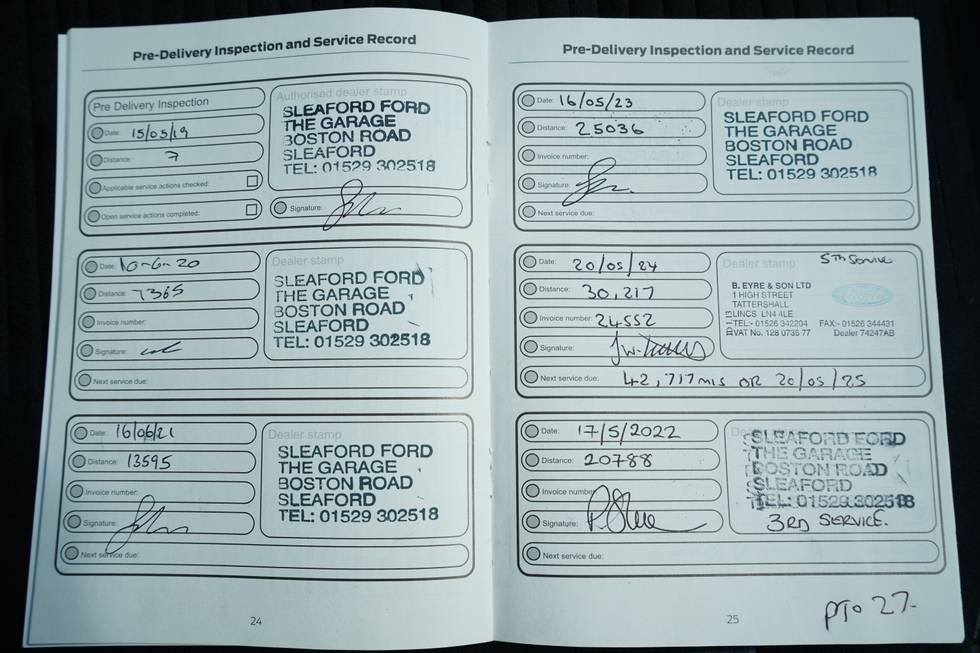 Pre-Delivery Inspection and Service Record
Pre Delivery Inspection
Date: 15/05/19
Distance: 7
Applicable service actions checked:
Open service actions completed:
Authorised dealer stamp
SLEAFORD FORD
THE GARAGE
BOSTON ROAD
SLEAFORD
TEL: 01529 302518
Signature:
Date: 10-6-20
Distance: 7365
Invoice number:
Signature:
Next service due:
Dealer stamp
SLEAFORD FORD
THE GARAGE
BOSTON ROAD
SLEAFORD
TEL: 01529 302518
Date: 16/06/21
Distance: 13595
Invoice number:
Signature:
Next service due:
Dealer stamp
SLEAFORD FORD
THE GARAGE
BOSTON ROAD
SLEAFORD
TEL: 01529 302518
24
Pre-Delivery Inspection and Service Record
Date: 16/05/23
Distance: 25036
Invoice number:
Signature:
Next service due:
Dealer stamp
SLEAFORD FORD
THE GARAGE
BOSTON ROAD
SLEAFORD
TEL: 01529 302518
Date: 20/05/24
Distance: 30,217
Invoice number: 24552
Signature:
Next service due: 42,717 mls OR 20/05/25
Dealer stamp 5TH Service
B. EYRE & SON LTD
1 HIGH STREET
TATTERSHALL
LINCS LN4 4LE
TEL:- 01526 342204 FAX:- 01526 344431
VAT No. 128 0736 77 Dealer 74247AB
Date: 17/5/2022
Distance: 20788
Invoice number
Signature:
Next service due:
SLEAFORD FORD
THE GARAGE
BOSTON ROAD
SLEAFORD
TEL: 01529 302518
3RD SERVICE.
25
PTO 27.